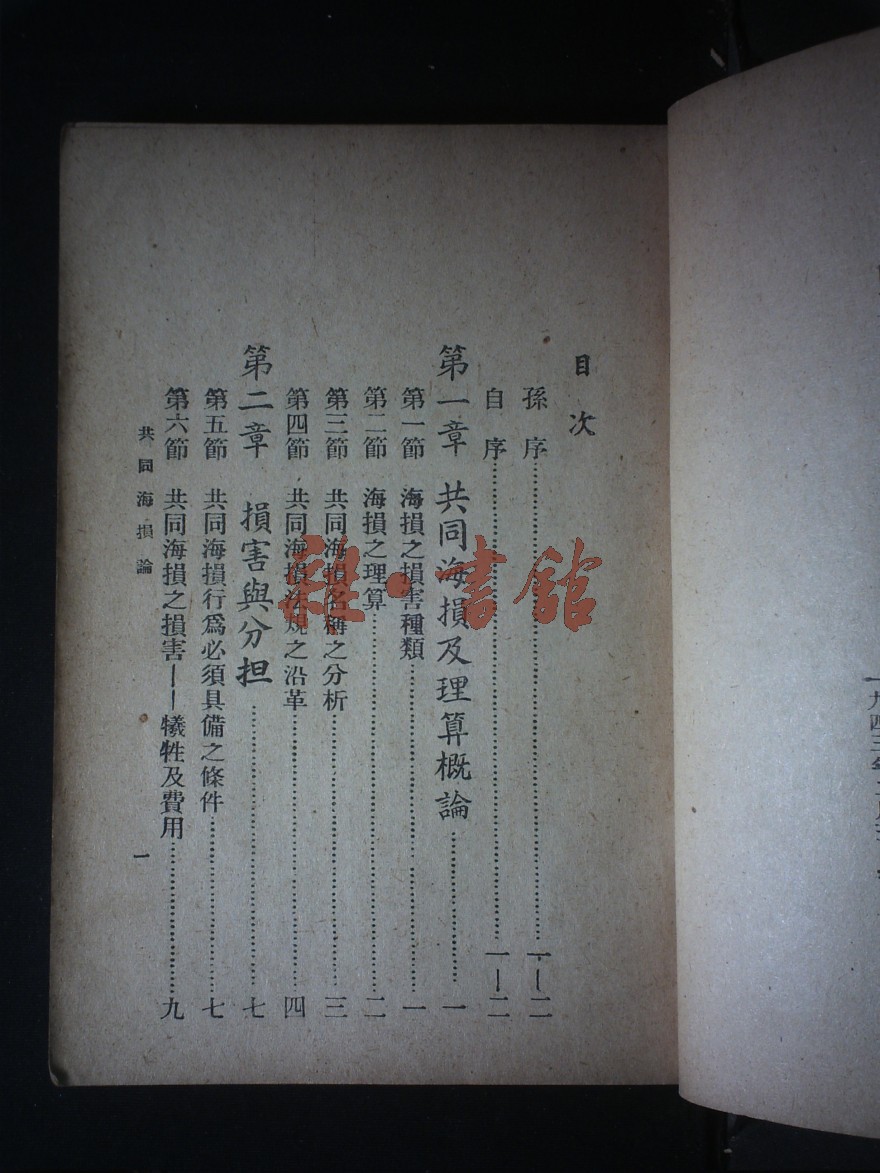 目次
孫序……一—二
自序……一—二
第一章 共同海損及理算概論……一
第一節 海損之損害種類……一
第二節 海損之理算……二
第三節 共同海損名稱之分析……三
第四節 共同海損法規之沿革……四
第二章 損害與分担……七
第五節 共同海損行爲必須具備之條件……七
第六節 共同海損之損害——犧牲及費用……九
共同海損論
一
雜·書館